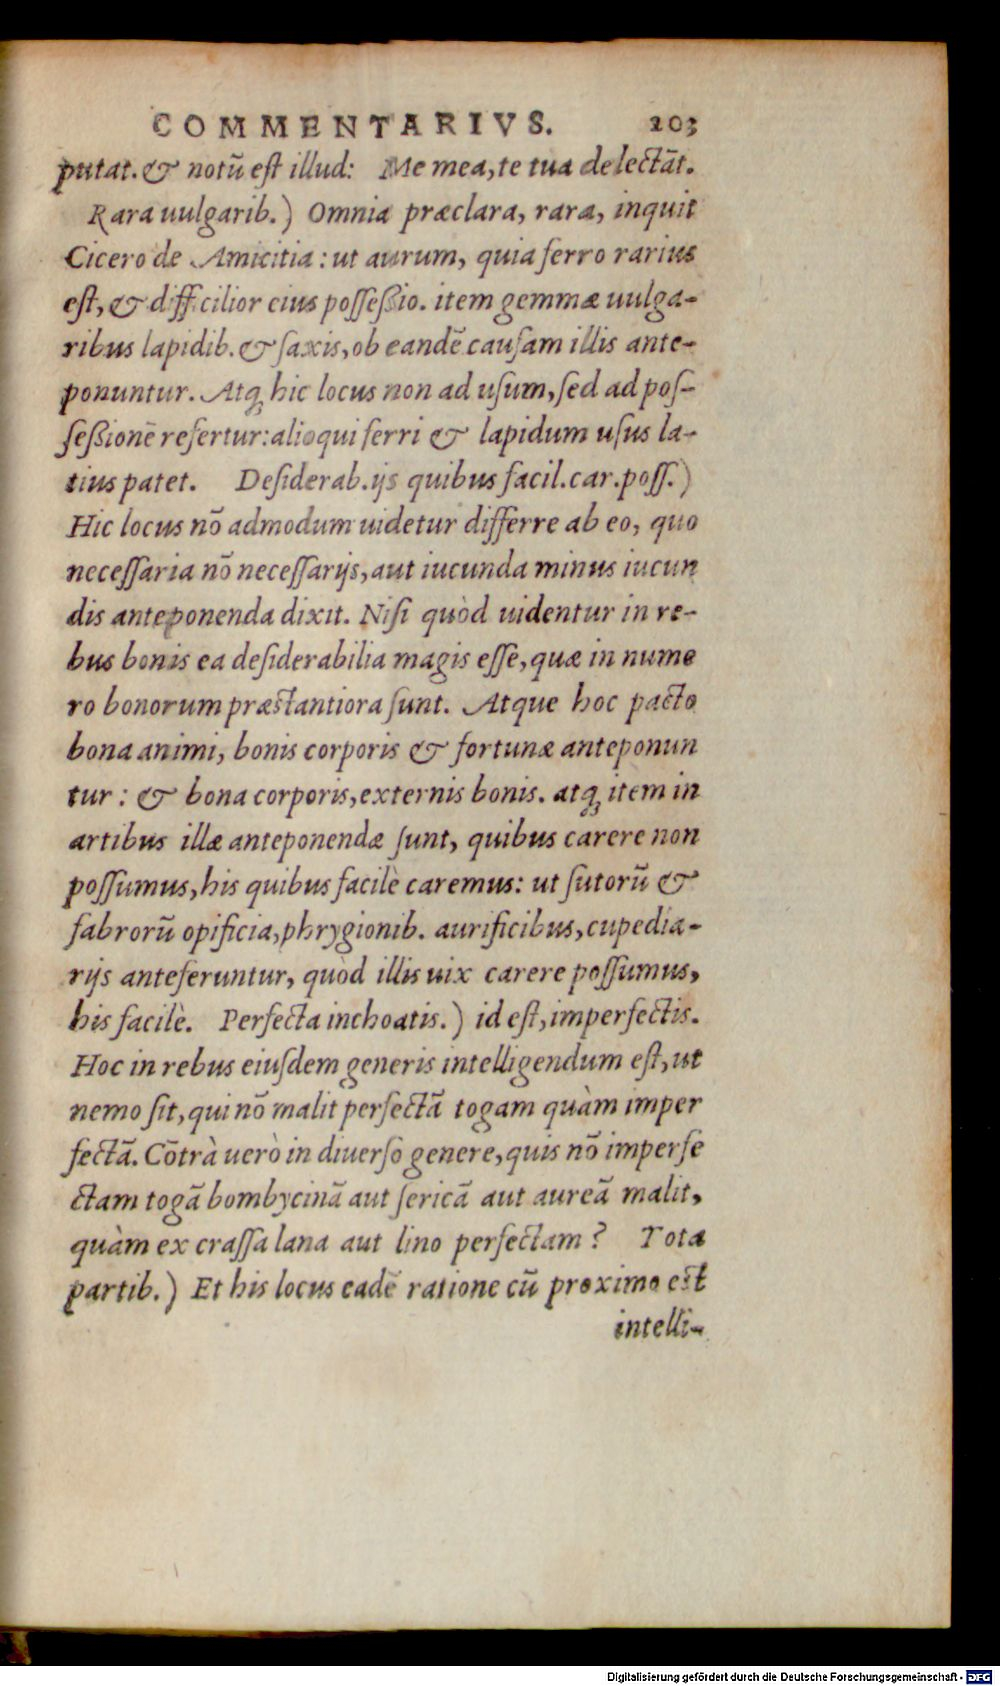 COMMENTARIVS. 203
putat. & notū est illud: Me mea, te tua delectāt.
Rara uulgarib.) Omnia præclara, rara, inquit
Cicero de Amicitia: ut aurum, quia ferro rarius
est, & difficilior eius possessio. item gemmæ uulga-
ribus lapidib. & saxis, ob eandē causam illis ante-
ponuntur. Atq; hic locus non ad usum, sed ad pos-
sessionē refertur: alioqui ferri & lapidum usus la-
tius patet. Desiderab. ijs quibus facil. car. poss.)
Hic locus nō admodum uidetur differre ab eo, quo
necessaria nō necessarijs, aut iucunda minus iucun
dis anteponenda dixit. Nisi quòd uidentur in re-
bus bonis ea desiderabilia magis esse, quæ in nume
ro bonorum præstantiora sunt. Atque hoc pacto
bona animi, bonis corporis & fortunæ anteponun
tur: & bona corporis, externis bonis. atq; item in
artibus illæ anteponendæ sunt, quibus carere non
possumus, his quibus facilè caremus: ut sutorū &
fabrorū opificia, phrygionib. aurificibus, cupedia-
rijs anteferuntur, quòd illis uix carere possumus,
his facilè. Perfecta inchoatis.) id est, imperfectis.
Hoc in rebus eiusdem generis intelligendum est, ut
nemo sit, qui nō malit perfectā togam quàm imper
fectā. Cōtrà uerò in diuerso genere, quis nō imperfe
ctam togā bombycinā aut sericā aut aureā malit,
quàm ex crassa lana aut lino perfectam? Tota
partib.) Et his locus eadē ratione cū proximo est
intelli-
Digitalisierung gefördert durch die Deutsche Forschungsgemeinschaft - DFG